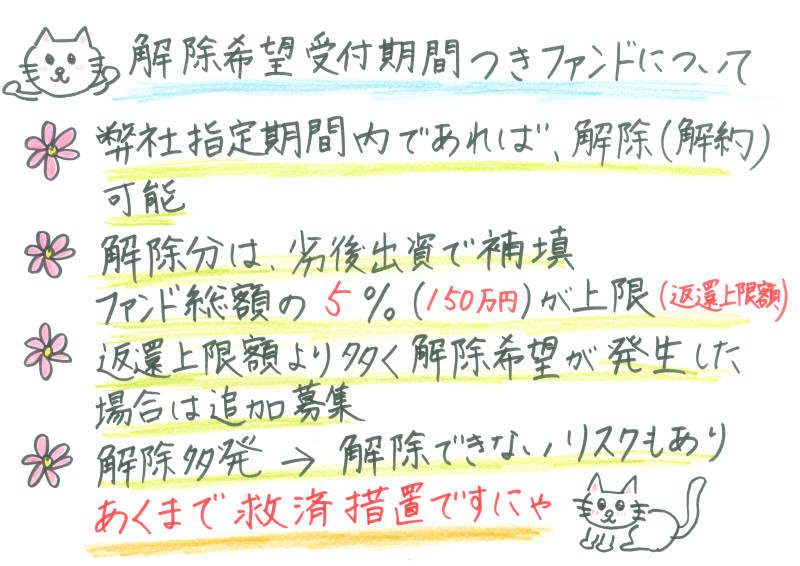 解除希望受付期間つきファンドについて
弊社指定期間内であれば、解除(解約)
可能
解除分は、劣後出資で補填
ファンド総額の5%(150万円)が上限(返還上限額)
返還上限額より多く解除希望が発生した
場合は追加募集
解除多発→解除できないリスクもあり
あくまで救済措置ですにゃ